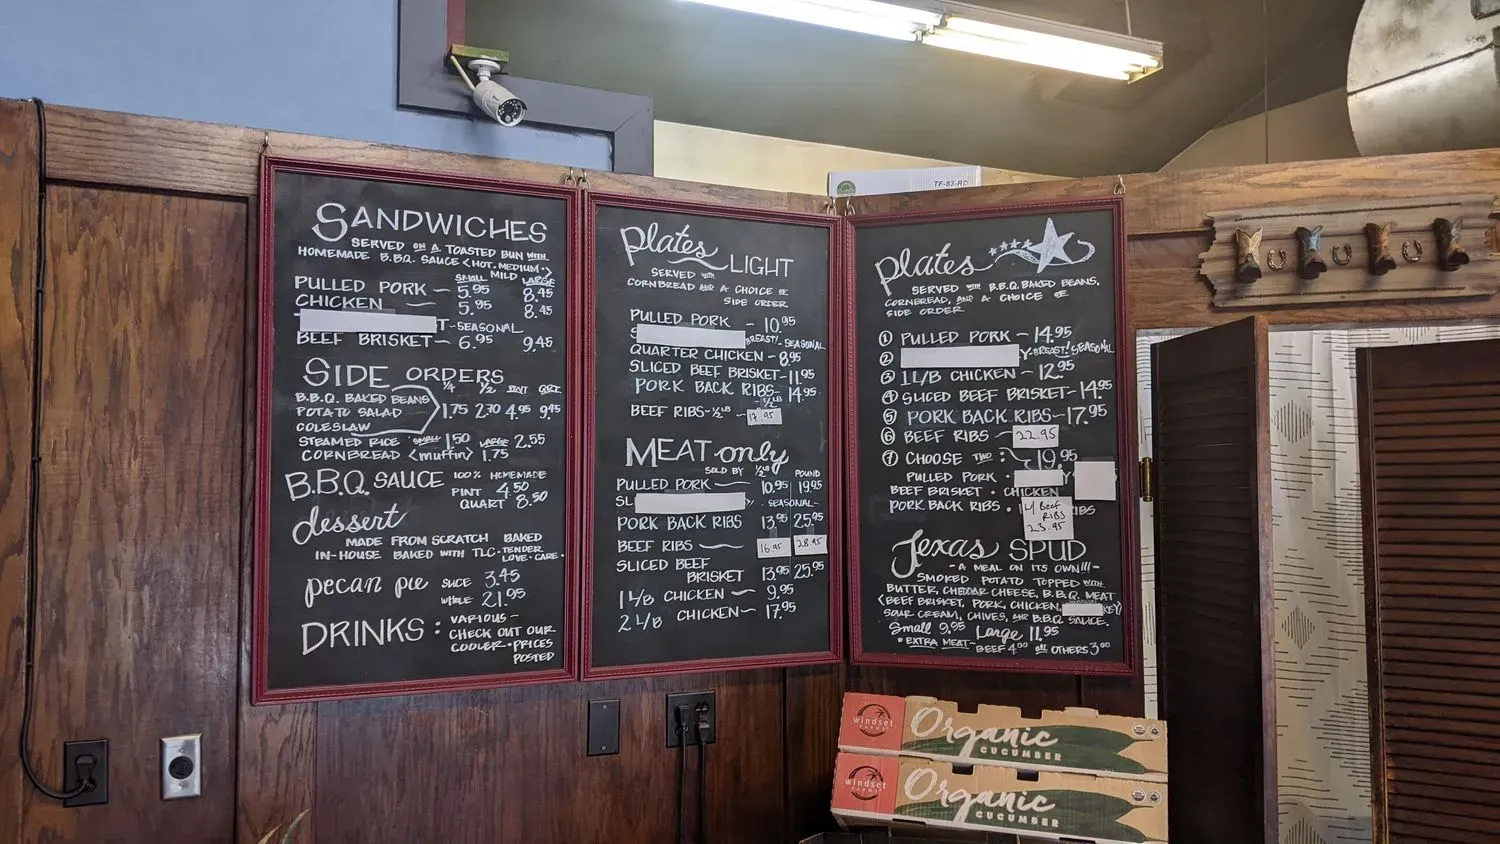 TF-83-RD
SANDWICHES
SERVED ON A TOASTED BUN WITH
HOMEMADE B.B.Q. SAUCE <HOT, MEDIUM,
MILD>
SMALL LARGE
PULLED PORK — 5.95 8.45
CHICKEN — 5.95 8.45
T-SEASONAL
BEEF BRISKET — 6.95 9.45
SIDE ORDERS
1/4 1/2 PINT QRT
B.B.Q. BAKED BEANS
POTATO SALAD 1.75 2.70 4.95 9.45
COLESLAW
STEAMED RICE SMALL 1.50 LARGE 2.55
CORNBREAD <muffin> 1.75
B.B.Q. SAUCE 100% HOMEMADE
PINT 4.50
QUART 8.50
dessert
MADE FROM SCRATCH BAKED
IN-HOUSE BAKED WITH TLC • TENDER
LOVE • CARE •
pecan pie SLICE 3.45
WHOLE 21.95
DRINKS: VARIOUS —
CHECK OUT OUR
COOLER • PRICES
POSTED
Plates LIGHT
SERVED WITH
CORNBREAD AND A CHOICE OF
SIDE ORDER
PULLED PORK ~ 10.95
BREAST! SEASONAL
QUARTER CHICKEN ~ 8.95
SLICED BEEF BRISKET - 11.95
PORK BACK RIBS - 14.95
- 1/2 LB
BEEF RIBS ~ 1/2 LB ~ 17.95
MEAT only
SOLD BY 1/2 LB POUND
PULLED PORK — 10.95 19.95
SL SEASONAL -
PORK BACK RIBS 13.95 25.95
BEEF RIBS — 16.95 28.95
SLICED BEEF
BRISKET 13.95 25.95
1 L/B CHICKEN — 9.95
2 L/B CHICKEN ~ 17.95
Plates
SERVED WITH B.B.Q. BAKED BEANS,
CORNBREAD, AND A CHOICE OF
SIDE ORDER
① PULLED PORK ~ 14.95
② Y-BREAST! SEASONAL
③ 1 L/B CHICKEN ~ 12.95
④ SLICED BEEF BRISKET ~ 14.95
⑤ PORK BACK RIBS ~ 17.95
⑥ BEEF RIBS ~ 22.95
⑦ CHOOSE TWO: ~ 19.95
PULLED PORK • Y
BEEF BRISKET • CHICKEN
PORK BACK RIBS • RIBS
W/ Beef
RIBS
23.95
Texas SPUD
- A MEAL ON ITS OWN!!! -
SMOKED POTATO TOPPED WITH
BUTTER, CHEDDAR CHEESE, B.B.Q. MEAT
<BEEF BRISKET, PORK, CHICKEN, KEY>
SOUR CREAM, CHIVES, AND B.B.Q. SAUCE.
Small 9.95 Large 11.95
* EXTRA MEAT ~ BEEF 4.00 all OTHERS 3.00
windset
FARMS
Organic
CUCUMBER
windset
FARMS
Organic
CUCUMBER